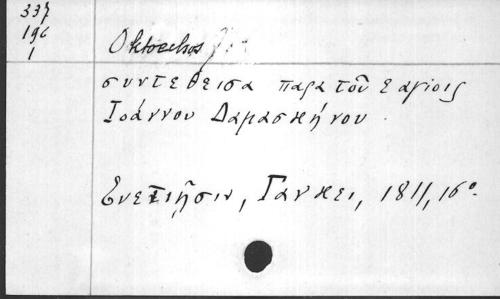 337
196
1
Oktoechos
συντεθεισα παρα τοῦ εαγιοις
Ιοάννου Δαμασκήνου.
Ενετιῆσιν, Γλυκει, 1811, 16°.